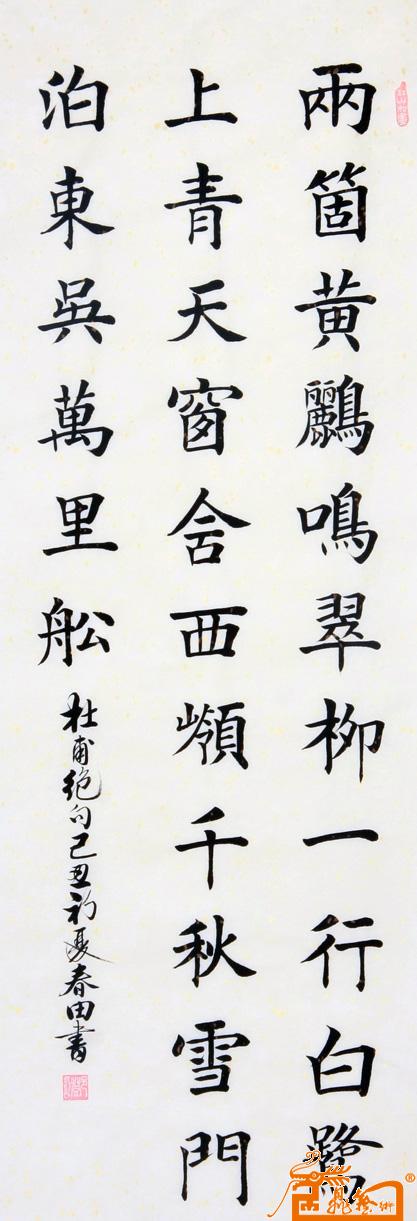 兩箇黄鸝鳴翠柳一行白鷺
上青天窗含西嶺千秋雪門
泊東吳萬里舩
杜甫絶句己丑初夏春田書